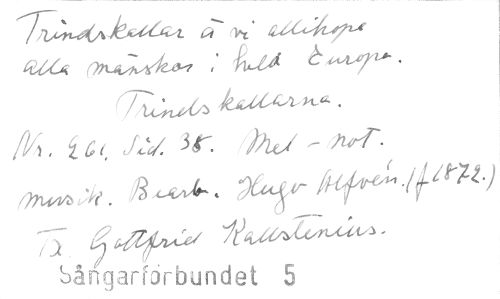 Trindskallar ä vi allihopa
alla mänskor i hela Europa.
Trindskallarna.
Nr. 261, Sid. 38. Mel-not.
musik. Bearb. Hugo Alfvén. (f 1872.)
Tx Gottfrid Kallstenius.
Sångarförbundet 5